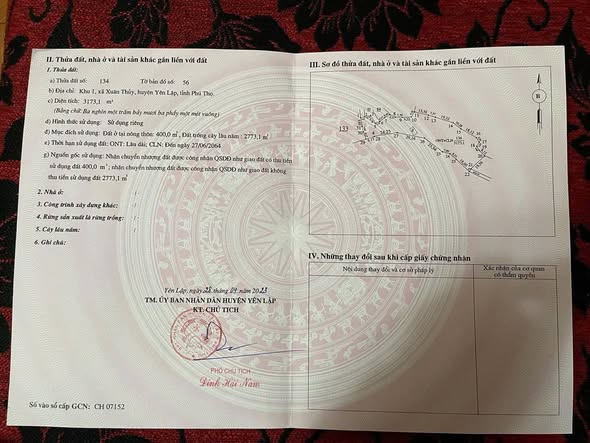 II. Thửa đất, nhà ở và tài sản khác gắn liền với đất
1. Thửa đất:
a) Thửa đất số: 134 Tờ bản đồ số: 56
b) Địa chỉ: Khu 1, xã Xuân Thủy, huyện Yên Lập, tỉnh Phú Thọ.
c) Diện tích: 3173,1 m²
(Bằng chữ: Ba nghìn một trăm bảy mươi ba phẩy một mét vuông)
d) Hình thức sử dụng: Sử dụng riêng
đ) Mục đích sử dụng: Đất ở tại nông thôn: 400,0 m², Đất trồng cây lâu năm: 2773,1 m²
e) Thời hạn sử dụng đất: ONT: Lâu dài; CLN: Đến ngày 27/06/2064
g) Nguồn gốc sử dụng: Nhận chuyển nhượng đất được công nhận QSDĐ như giao đất có thu tiền
sử dụng đất 400,0 m²; nhận chuyển nhượng đất được công nhận QSDĐ như giao đất không
thu tiền sử dụng đất 2773,1 m²
2. Nhà ở: /
3. Công trình xây dựng khác: /
4. Rừng sản xuất là rừng trồng: /
5. Cây lâu năm: /
6. Ghi chú:
Yên Lập, ngày 28 tháng 09 năm 2023
TM. ỦY BAN NHÂN DÂN HUYỆN YÊN LẬP
KT. CHỦ TỊCH
PHÓ CHỦ TỊCH
Đinh Hải Nam
Số vào sổ cấp GCN: CH 07152
III. Sơ đồ thửa đất, nhà ở và tài sản khác gắn liền với đất
B
133
22
IV. Những thay đổi sau khi cấp giấy chứng nhận
Nội dung thay đổi và cơ sở pháp lý
Xác nhận của cơ quan
có thẩm quyền